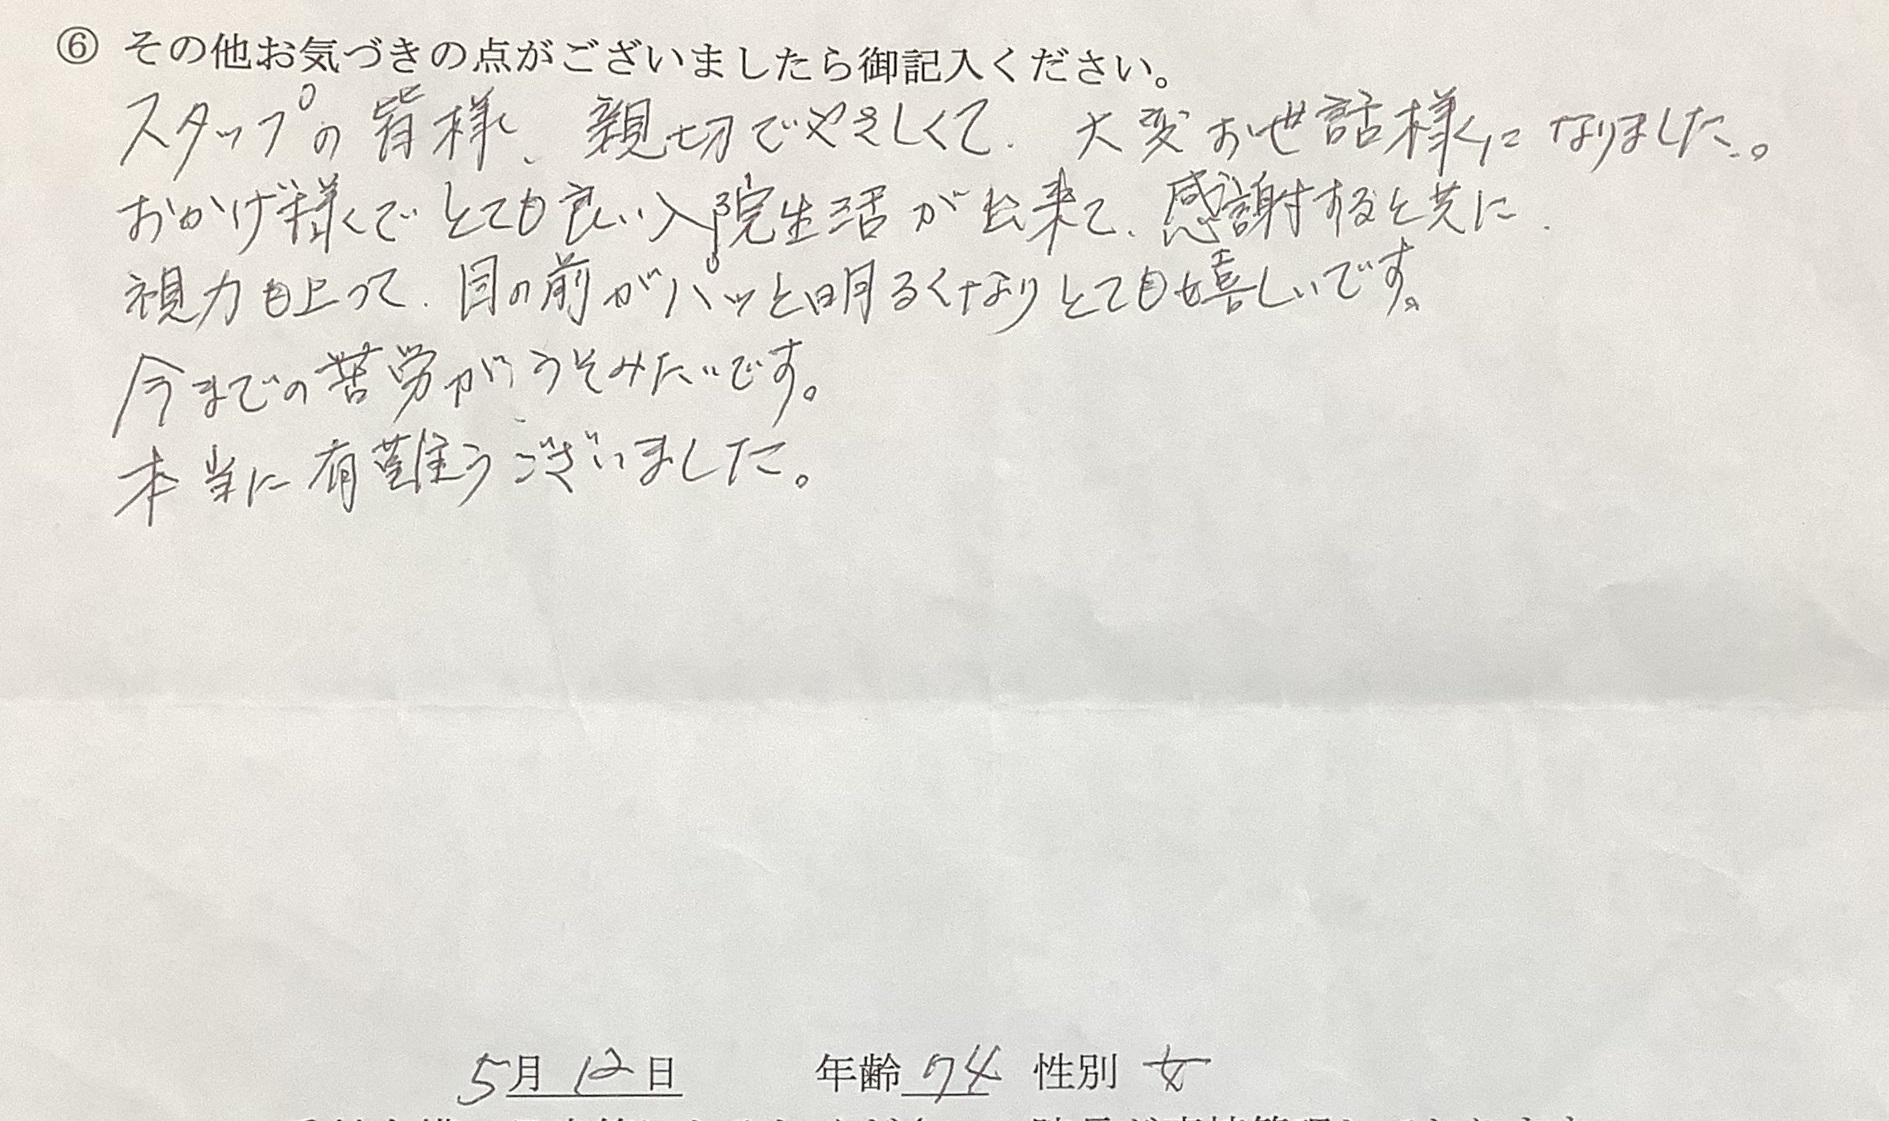 ⑥ その他お気づきの点がございましたら御記入ください。
スタップの皆様、親切でやさしくて、大変お世話様になりました。
おかげ様でとても良い入院生活が出来て、感謝すると共に、
視力も上って、目の前がパッと明るくなりとても嬉しいです。
今までの苦労がうそみたいです。
本当に有難うございました。
5月12日 年齢 74 性別 女